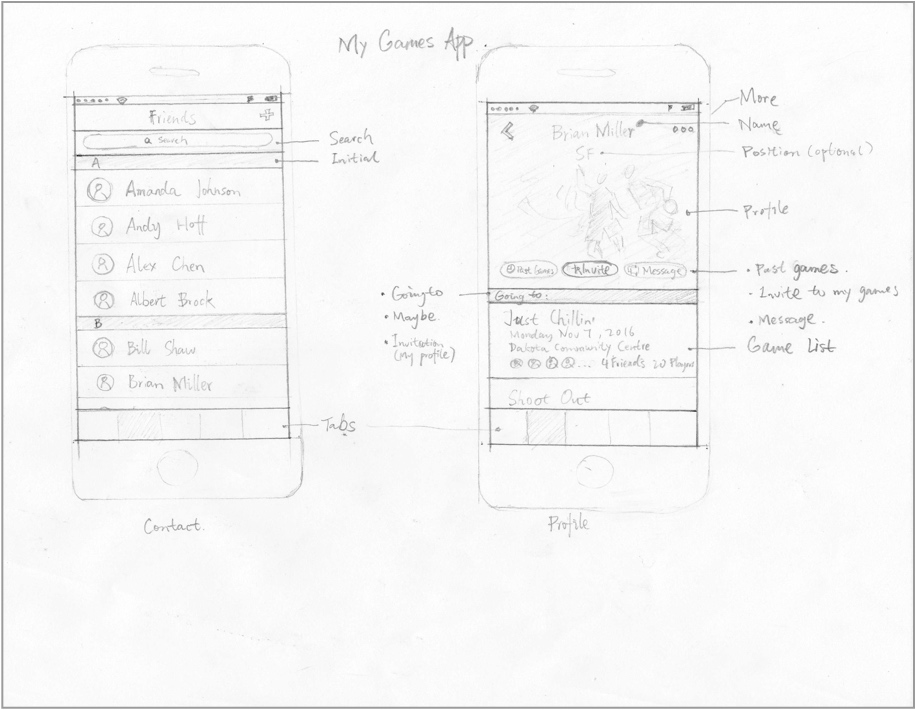 My Games App
Friends
Search
A
Amanda Johnson
Andy Hoff
Alex Chen
Albert Brock
B
Bill Shaw
Brian Miller
Search
Initial
Tabs
Contact.
Brian Miller
SF
Past Games
+ Invite
Message
Going to:
Just Chillin'
Monday Nov 7, 2016
Dakota Community Centre
... 4 Friends 20 Players
Shoot Out
More
Name
Position (optional)
Profile
• Past games.
• Invite to my games
• Message.
Game List
• Going to
• Maybe.
• Invitation
(My profile)
Profile